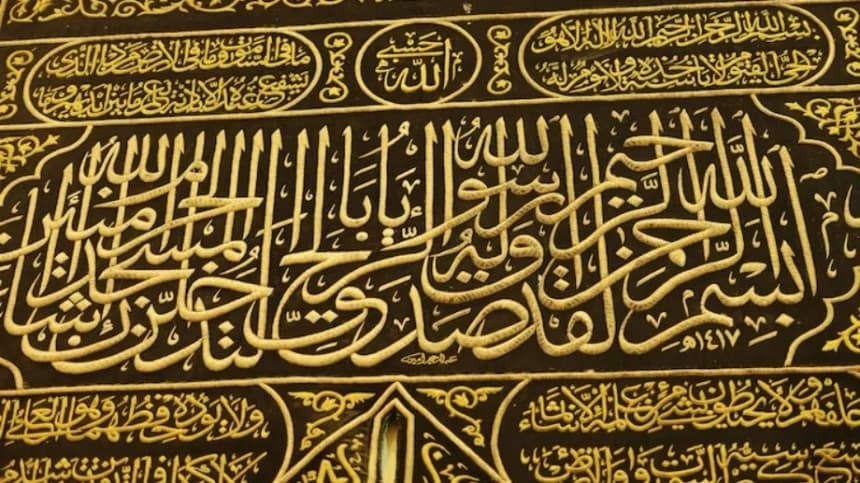 بسم الله الرحمن الرحيم الله لا إله إلا هو
الحي القيوم لا تأخذه سنة ولا نوم له
حسبي الله
ما في السموات وما في الأرض من ذا الذي
يشفع عنده إلا بإذنه يعلم ما بين أيديهم وما
بسم الله الرحمن الرحيم لقد صدق الله رسوله الرءيا بالحق لتدخلن المسجد الحرام إن شاء الله آمنين
١٤١٧هـ
خلفهم ولا يحيطون بشيء من علمه إلا بما شاء
وسع كرسيه السموات والأرض
ولا يؤده حفظهما وهو العلي